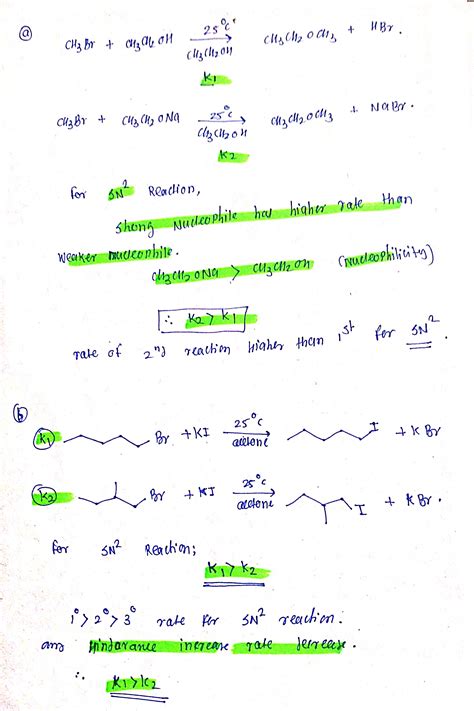 (a) CH3Br + CH3CH2OH 25°C CH3CH2OH CH3CH2OCH3 + HBr.
K1
CH3Br + CH3CH2ONa 25°C CH3CH2OH CH3CH2OCH3 + NaBr.
K2
for SN2 Reaction,
Strong Nucleophile has higher rate than
weaker nucleophile.
CH3CH2ONa > CH3CH2OH (Nucleophilicity)
∴ K2 > K1
rate of 2nd reaction higher than 1st for SN2
(b)
K1 Br + KI 25°C acetone I + KBr
K2 Br + KI 25°C acetone I + KBr.
for SN2 Reaction;
K1 > K2
1° > 2° > 3° rate for SN2 reaction.
and hindarance increase rate decrease.
∴ K1 > K2